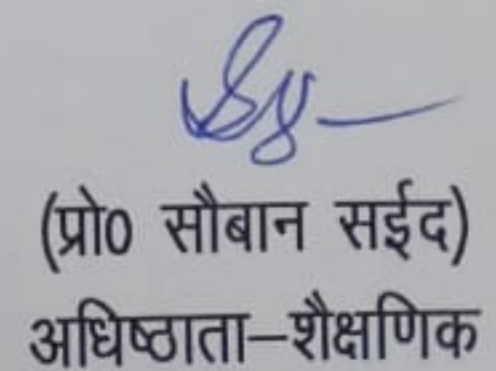 (प्रो0 सौबान सईद)
अधिष्ठाता–शैक्षणिक